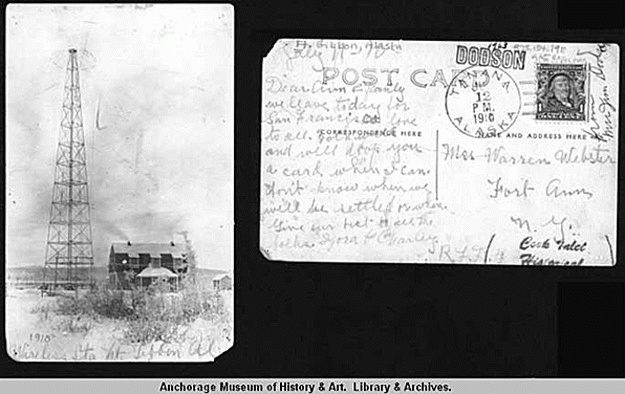 1910
Wireless Sta Ft. Gibbon Al
Ft. Gibbon, Alaska
July
DODSON
POST CARD
TANANA
12
P.M.
1910
ALASKA
CORRESPONDENCE HERE
NAME AND ADDRESS HERE
Dear Ann & family
we leave today for
San Francisco love
to all.
and will drop you
a card when I can.
don't know when we
will be settled or when.
Give our best to all the
folks. & Charley
Mrs Warren Webster
Fort Ann
N. Y.
R.F.D.
Cook Inlet
Historical
from
Anchorage Museum of History & Art. Library & Archives.